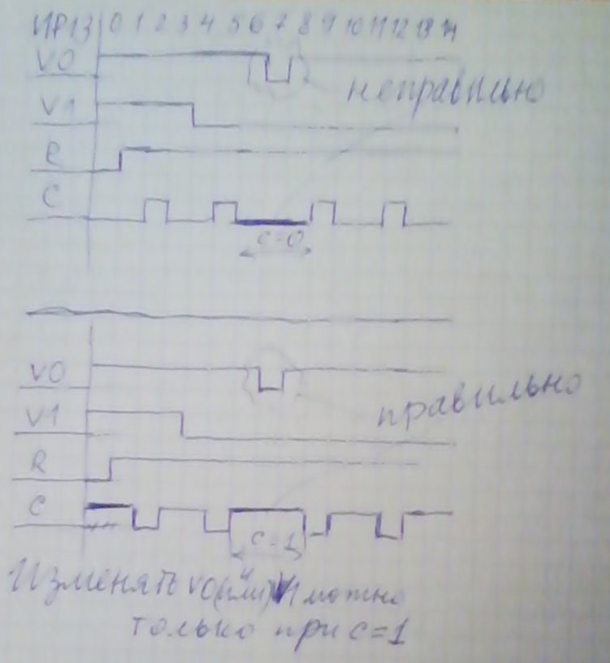 ИР13 0 1 2 3 4 5 6 7 8 9 10 11 12 13 14
V0
неправильно
V1
R
C
C=0
V0
правильно
V1
R
C
C=1
Изменять V0(или) V1 можно
только при C=1